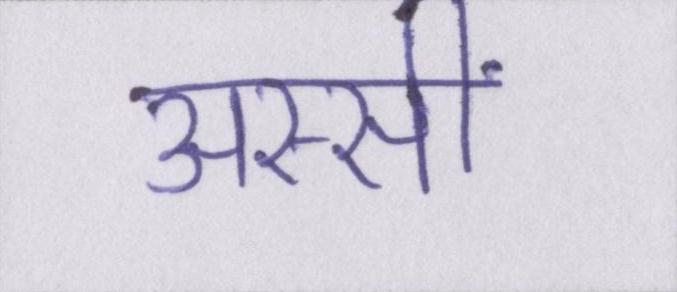 अस्सीं